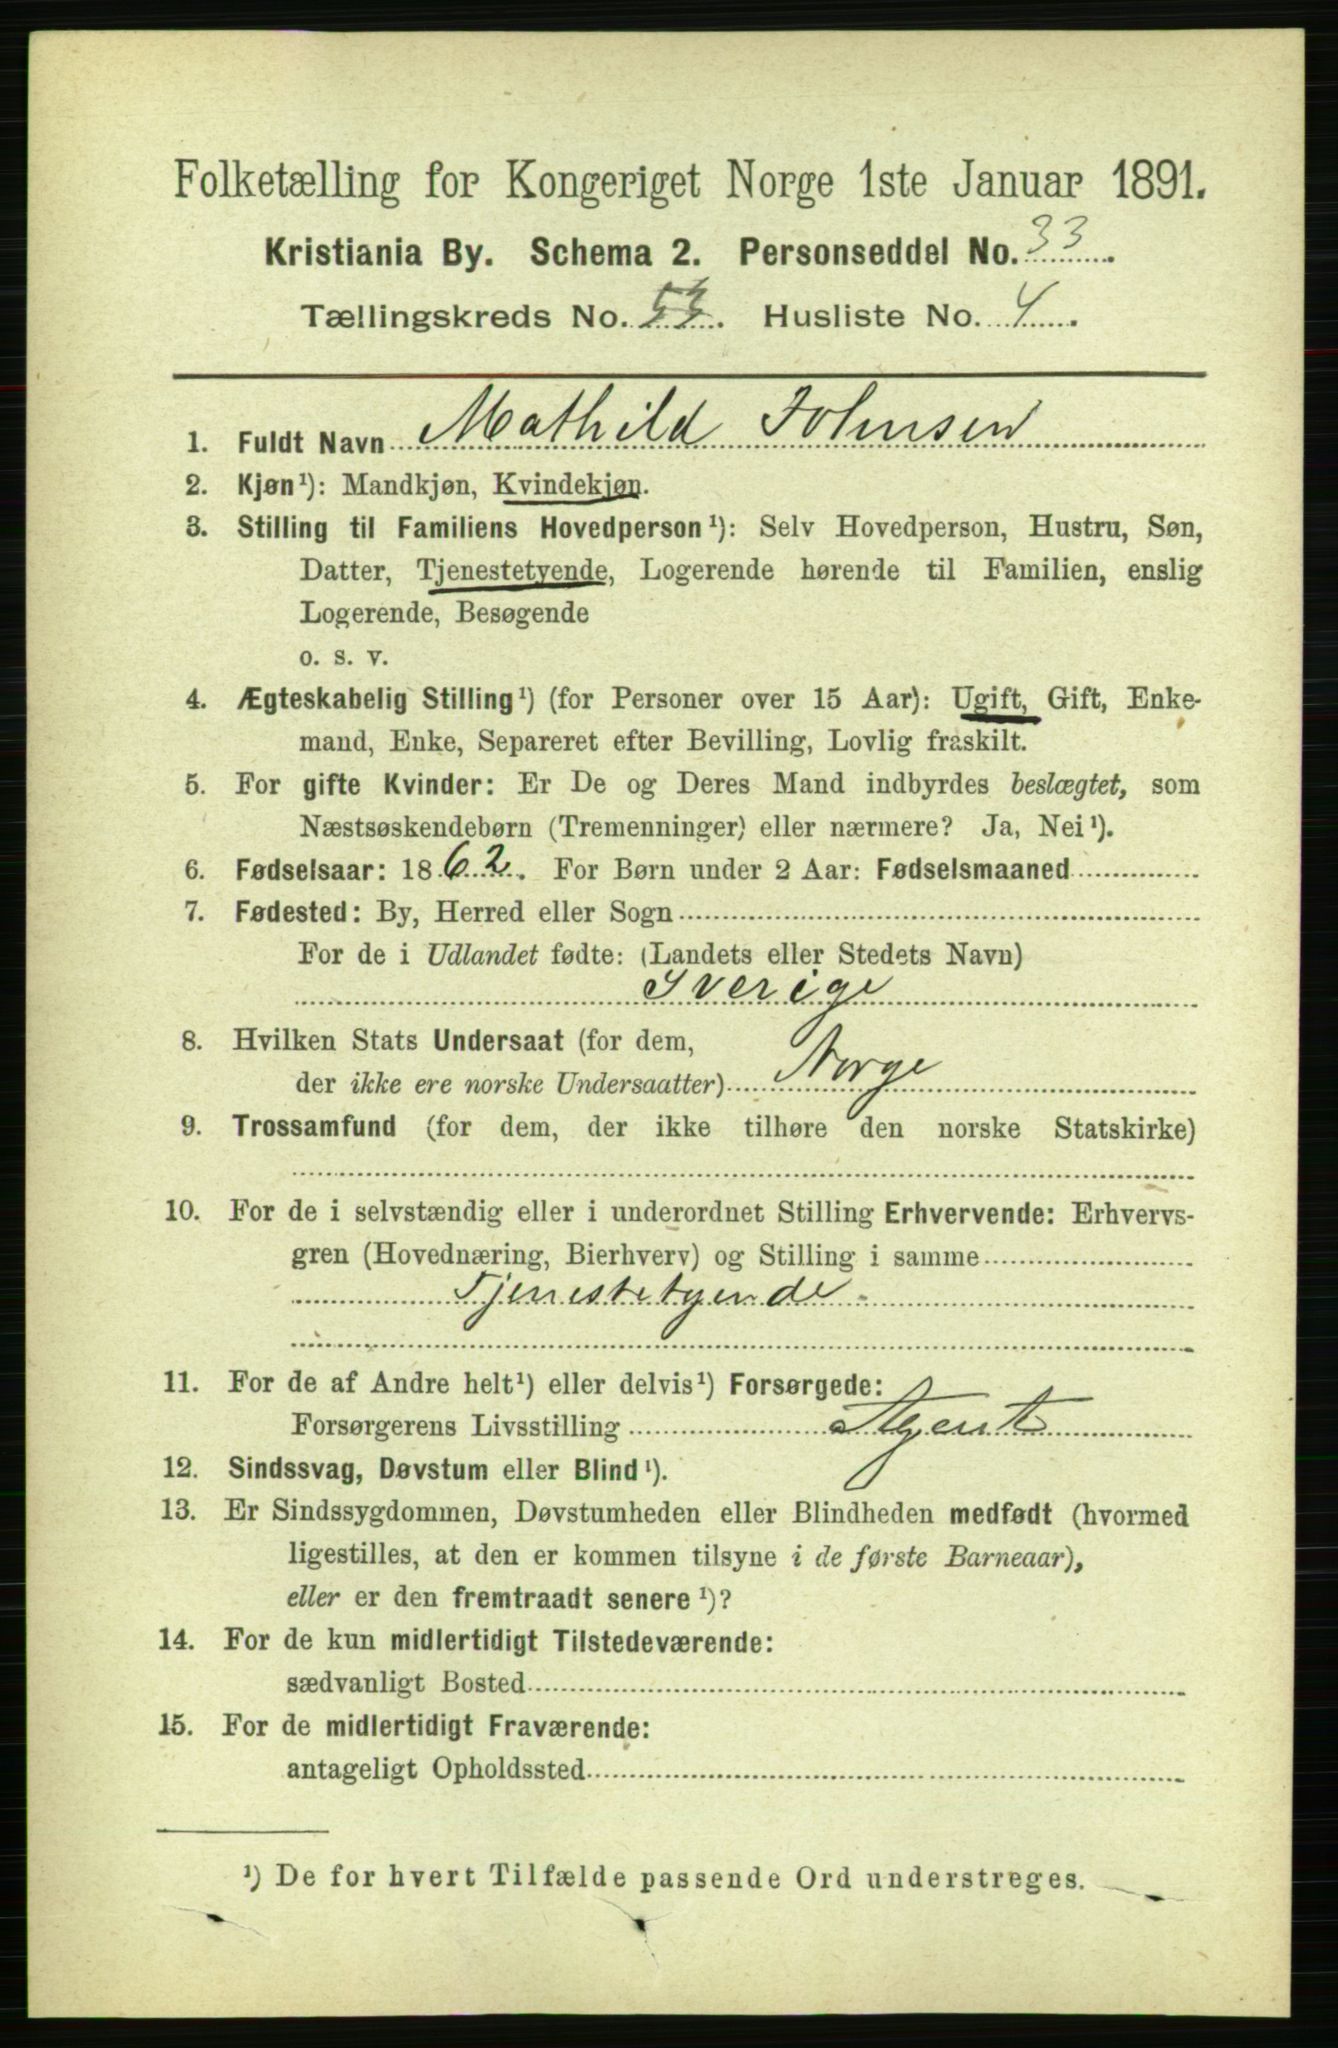 Folketælling for Kongeriget Norge 1ste Januar 1891.
Kristiania By. Schema 2. Personseddel No. 33.
Tællingskreds No. 53. Husliste No. 4.
1. Fuldt Navn Mathild Johnsen
2. Kjøn¹): Mandkjøn, Kvindekjøn.
3. Stilling til Familiens Hovedperson¹): Selv Hovedperson, Hustru, Søn,
Datter, Tjenestetyende, Logerende hørende til Familien, enslig
Logerende, Besøgende
o. s. v.
4. Ægteskabelig Stilling¹) (for Personer over 15 Aar): Ugift, Gift, Enke-
mand, Enke, Separeret efter Bevilling, Lovlig fraskilt.
5. For gifte Kvinder: Er De og Deres Mand indbyrdes beslægtet, som
Næstsøskendebørn (Tremenninger) eller nærmere? Ja, Nei¹).
6. Fødselsaar: 1862. For Børn under 2 Aar: Fødselsmaaned
7. Fødested: By, Herred eller Sogn
For de i Udlandet fødte: (Landets eller Stedets Navn)
Sverige
8. Hvilken Stats Undersaat (for dem,
der ikke ere norske Undersaatter) Norge
9. Trossamfund (for dem, der ikke tilhøre den norske Statskirke)
10. For de i selvstændig eller i underordnet Stilling Erhvervende: Erhvervs-
gren (Hovednæring, Bierhverv) og Stilling i samme
Tjenestetyende
11. For de af Andre helt¹) eller delvis¹) Forsørgede:
Forsørgerens Livsstilling Agent
12. Sindssvag, Døvstum eller Blind¹).
13. Er Sindssygdommen, Døvstumheden eller Blindheden medfødt (hvormed
ligestilles, at den er kommen tilsyne i de første Barneaar),
eller er den fremtraadt senere¹)?
14. For de kun midlertidigt Tilstedeværende:
sædvanligt Bosted
15. For de midlertidigt Fraværende:
antageligt Opholdssted
¹) De for hvert Tilfælde passende Ord understreges.